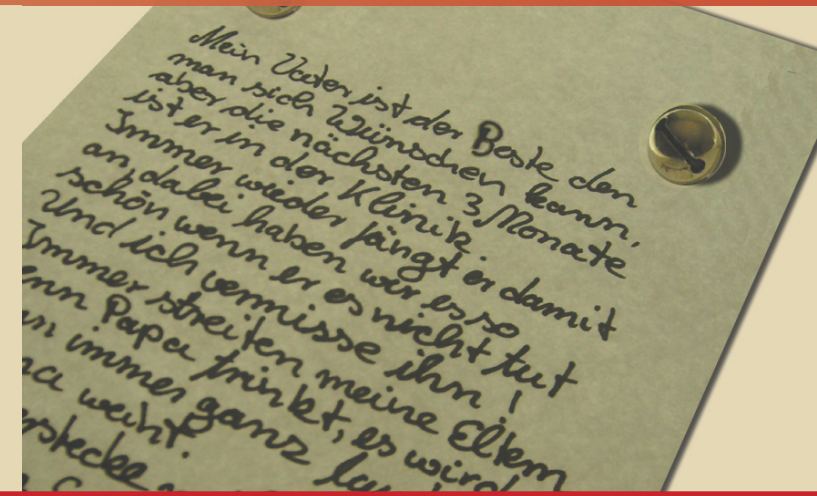 Mein Vater ist der Beste den
man sich Wünschen kann,
aber die nächsten 3 Monate
ist er in der Klinik.
Immer wieder fängt er damit
an, dabei haben wir es so
schön wenn er es nicht tut
Und ich vermisse ihn!
Immer streiten meine Eltern
Papa trinkt, es wird
immer ganz
weint.